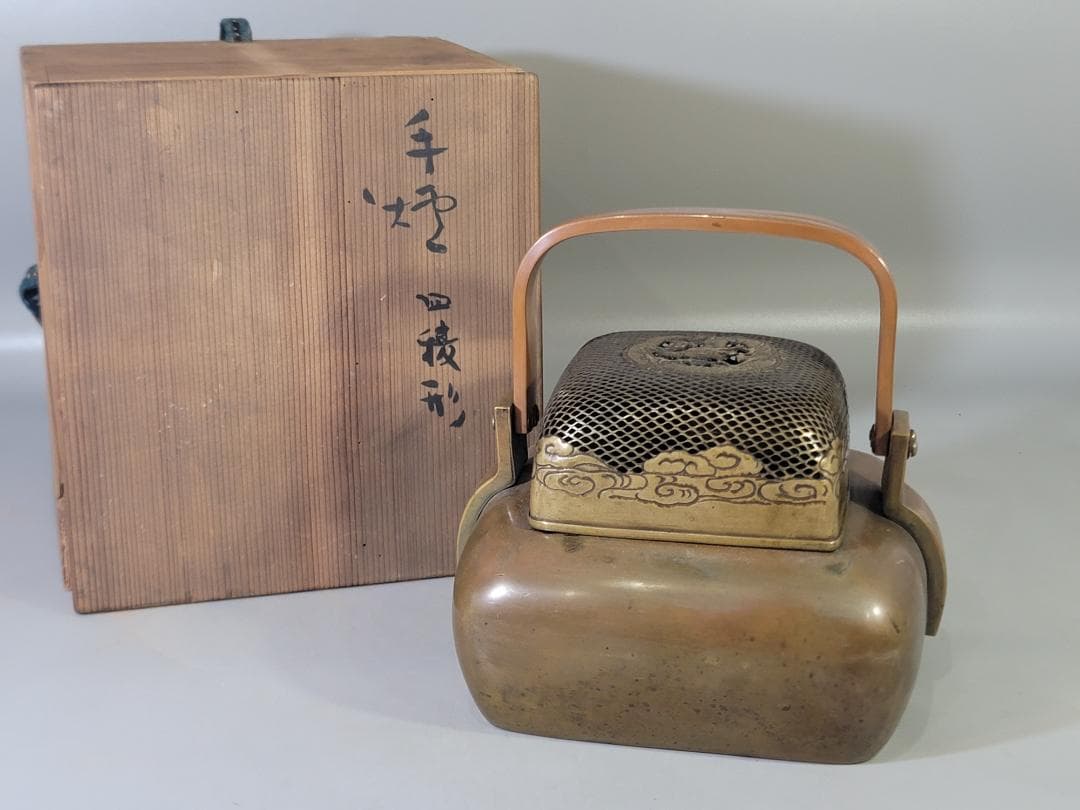 手爐 四稜形